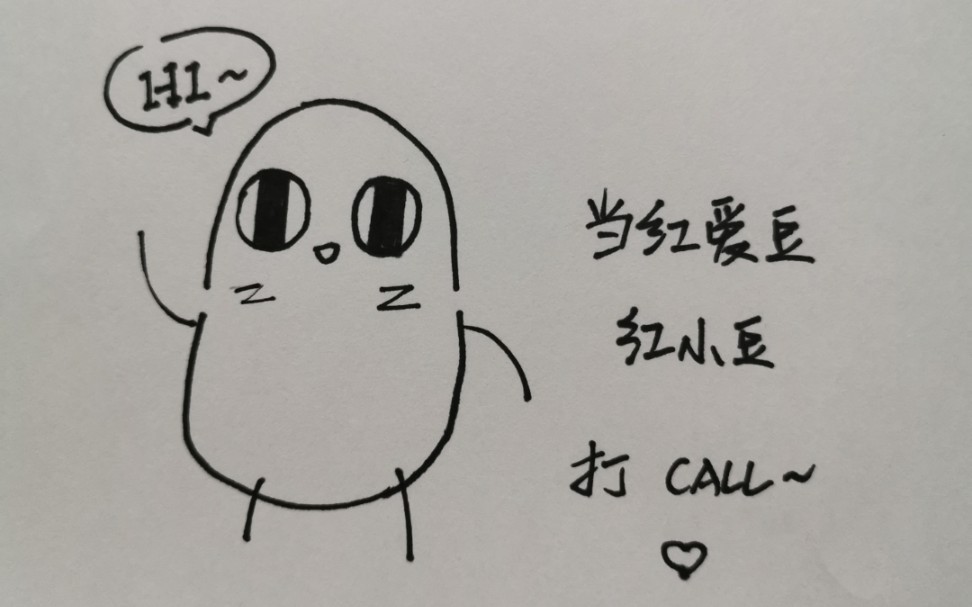 HI~
当红爱豆
红小豆
打 CALL~